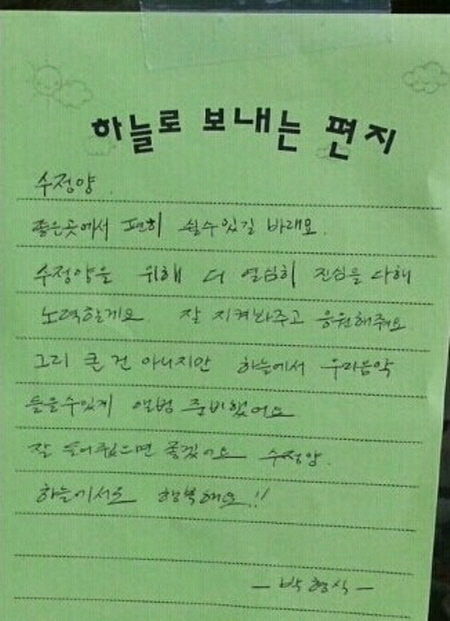 하늘로 보내는 편지
수정양.
좋은곳에서 편히 쉴수있길 바래요.
수정양을 위해 더 열심히 진심을 다해
노력할게요 잘 지켜봐주고 응원해줘요
그리 큰 건 아니지만 하늘에서 우리음악
들을수있게 앨범 준비했어요
잘 들어줬으면 좋겠어요 수정양.
하늘에서도 행복해요!!
- 박형식 -